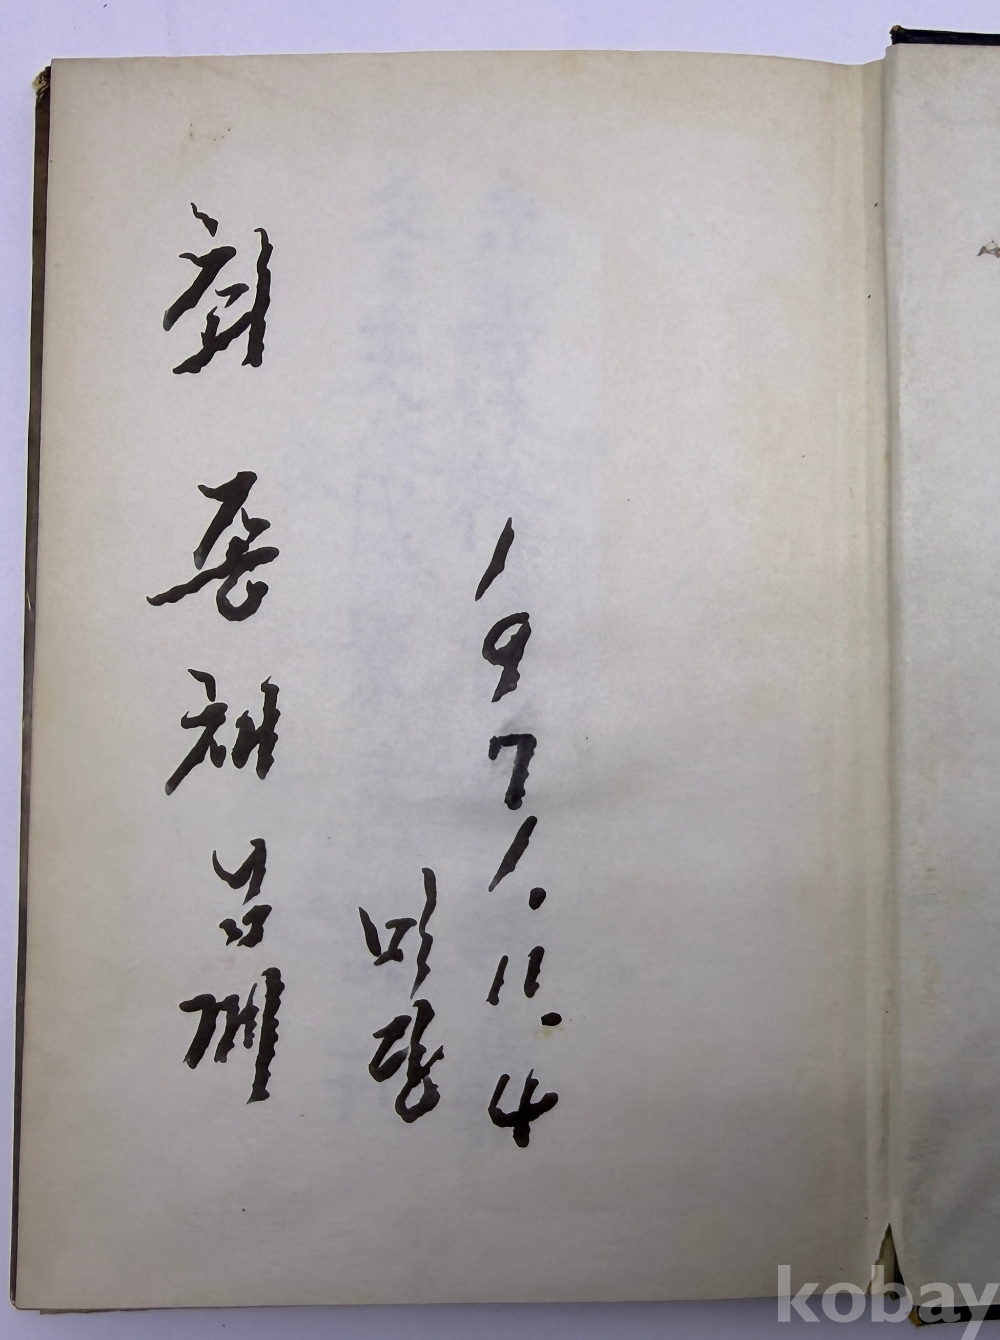 최종채님께
미당
1971. 11. 4
kobay